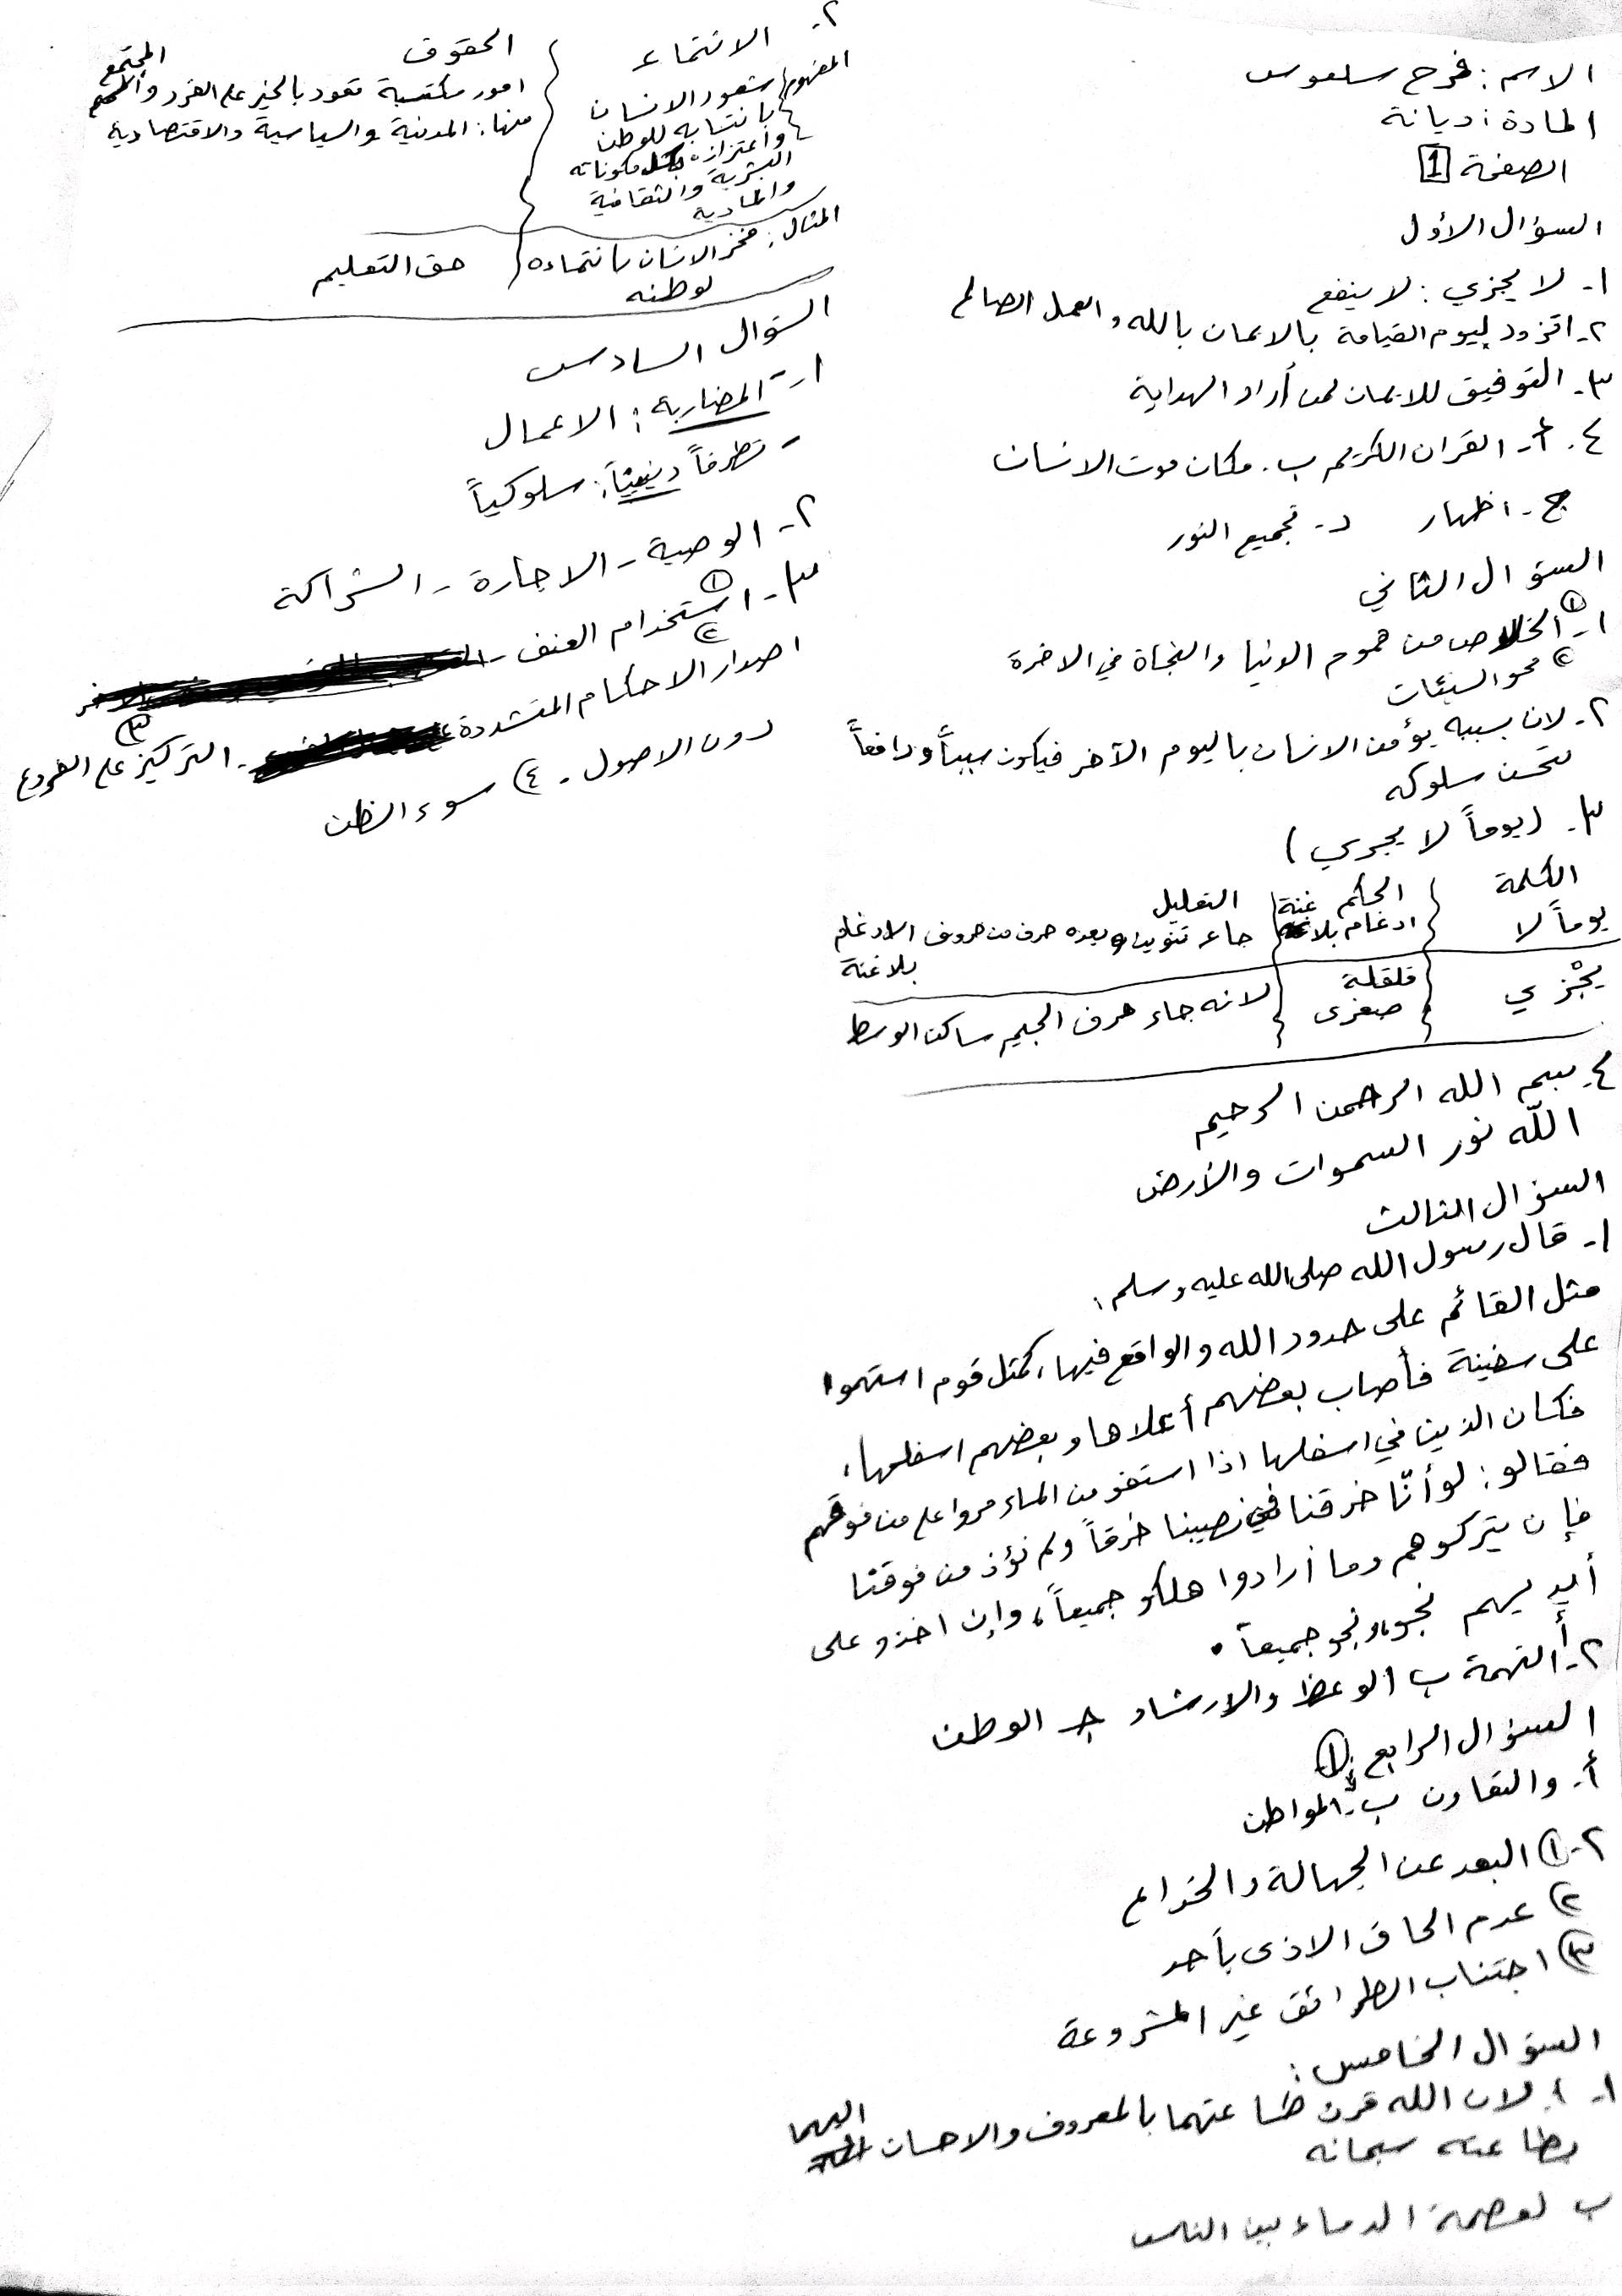 الاسم: فرح سلعوس
المادة: ديانة
الصفحة 1
السؤال الأول
١- لا يجزي: لا ينفع
٢- اتزود ليوم القيامة بالايمان بالله والعمل الصالح
٣- التوفيق للايمان لمن أراد الهداية
٤- أ- القران الكريم ب. مكان موت الانسان
ج- اظهار د- تجميع النور
السؤال الثاني
١- ① الخلاص من هموم الدنيا والنجاة في الاخرة
② محو السيئات
٢- لان بسببه يؤمن الانسان باليوم الآخر فيكون سبباً ودافعاً
لتحسن سلوكه
٣- (يوماً لا يجزي)
الكلمة الحكم التعليل
يوماً لا ادغام بلا غنة جاء تنوين وبعده حرف من حروف الادغام
بلا غنة
يجْزي قلقلة صغرى لانه جاء حرف الجيم ساكن الوسط
٤- بسم الله الرحمن الرحيم
اللّه نور السموات والأرض
السؤال الثالث
١- قال رسول الله صلى الله عليه وسلم:
مثل القائم على حدود الله والواقع فيها، كمثل قوم استهموا
على سفينة فأصاب بعضهم أعلاها وبعضهم اسفلها،
فكان الذين في اسفلها اذا استقو من الماء مروا على من فوقهم
فقالو: لو أنّا خرقنا في نصيبنا خرقاً ولم نؤذ من فوقنا
فإن يتركوهم وما أرادوا هلكو جميعاً، وإن اخذو على
أيديهم نجو ونجو جميعاً.
٢- أ التهمة ب الوعظ والارشاد ج الوطن
السؤال الرابع: ①
أ- والتعاون ب- المواطن
٢- ① البعد عن الجهالة والخداع
② عدم الحاق الاذى بأحد
③ اجتناب الطرائق غير المشروعة
السؤال الخامس:
١- أ. لان الله قرن طاعتهما بالمعروف والاحسان اليهما
بطاعته سبحانه
ب لعصمة الدماء بين الناس
٢- الانتماء الحقوق
المفهوم شعور الانسان بانتسابه للوطن واعتزازه بكل مكوناته البشرية والثقافية والمادية
امور مكتسبة تعود بالخير على الفرد والمجتمع
منها: المدنية والسياسية والاقتصادية
المثال: فخر الانسان بانتماءه لوطنه حق التعليم
السؤال السادس
١- - المضاربة: الاعمال
- تطرفاً دينياً: سلوكياً
٢- الوصية - الاجارة - الشراكة
٣- ① استخدام العنف -
② اصدار الاحكام المتشددة - ③ التركيز على الفروع
دون الاصول - ④ سوء الظن